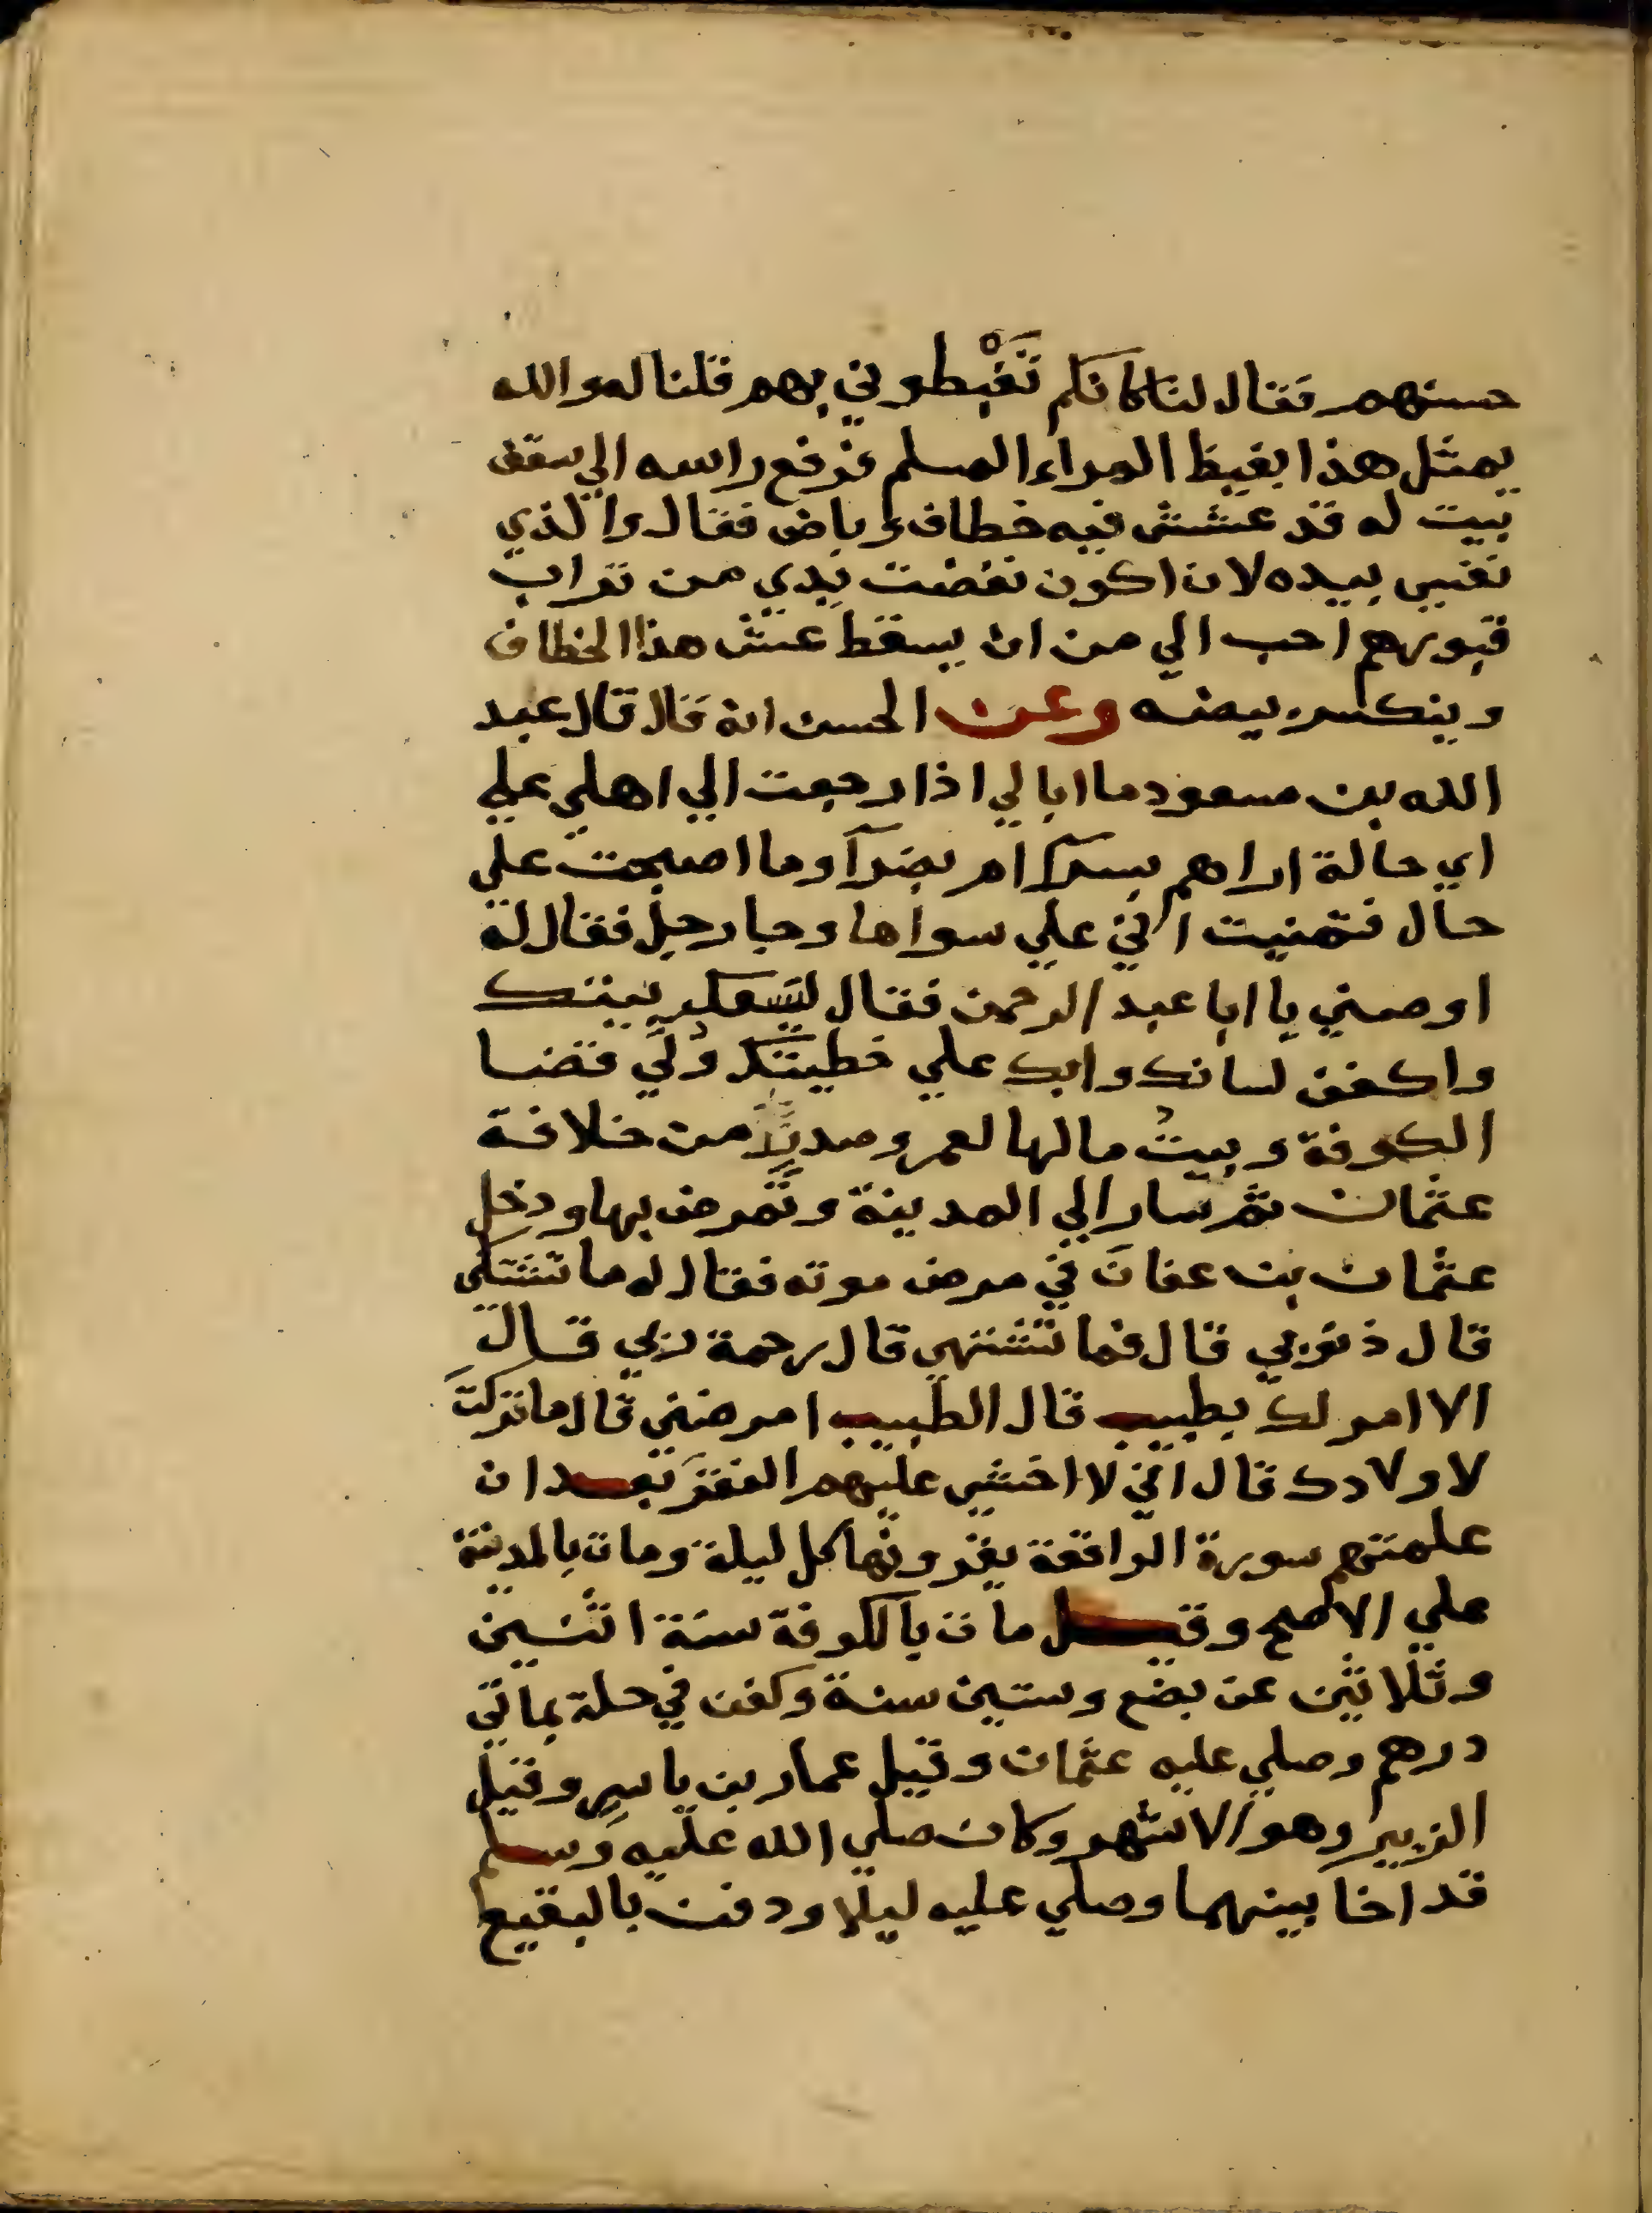 حسنهم فقال لنا كانكم تَغْبِطوني بهم قلنا له والله
بمثل هذا يغبط المراء المسلم فرفع راسه الي سقف
بيت له قد عشش فيه خطاف وباض فقال والذي
نفسي بيده لان اكون نفضت يدي من تراب
قبورهم احب الي من ان يسقط عش هذا الخطاف
وينكسر بيضه وعن الحسن انه قال قال عبد
الله بن مسعود ما ابالي اذا رجعت الي اهلي علي
اي حالة اراهم بسرآ ام بضرآ وما اصبحت علي
حال فتمنيت اني علي سواها وجا رجل فقال له
اوصني يا ابا عبد الرحمن فقال ليسعك بيتك
واكفف لسانك وابك علي خطيتك ولي قضا
الكوفة وبيتُ مالها لعمر وصدرًا من خلافة
عثمان ثم سار الي المدينة وتمرض بها ودخل
عثمان بن عفان في مرض موته فقال له ما تشتكي
قال ذنوبي قال فما تشتهي قال رحمة ربي قال
الا امر لك بطبيب قال الطبيب امرضني قال ما تركت
لاولادك قال اني لا اخشي عليهم الفقر بعد ان
علمتهم سورة الواقعة يقرونها كل ليلة ومات بالمدينة
علي الاصح وقيل مات بالكوفة سنة اثنين
وثلاثين عن بضع وستين سنة وكفن في حلة بماتي
درهم وصلي عليه عثمان وقيل عمار بن ياسر وقيل
الزبير وهو الاشهر وكان صلي الله عليه وسلم
قد اخا بينهما وصلي عليه ليلا ودفن بالبقيع